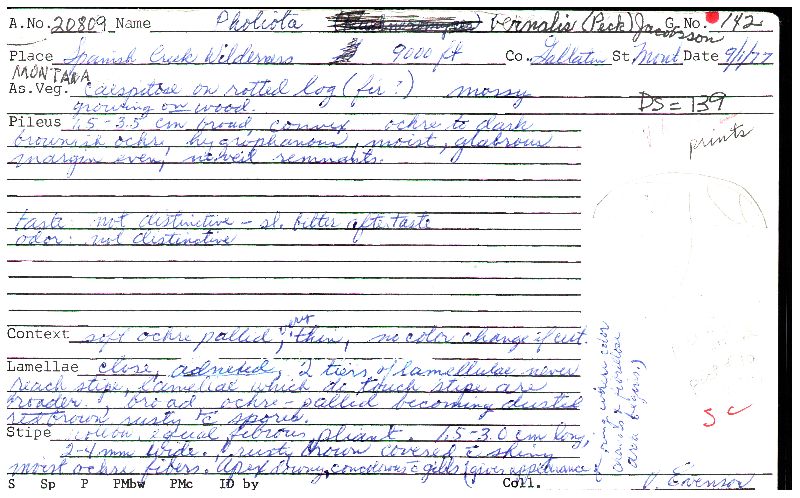 A.No. 20809 Name Pholiota vernalis (Peck) Jacobsson G. No. 142
Place Spanish Creek Wilderness 9000 ft Co. Gallatin St Mont Date 9/1/77
MONTANA
As.Veg. caespitose on rotted log (fir?) mossy
growing on wood.
DS = 139
prints
Pileus 1.5-3.5 cm broad convex ochre to dark
brownish ochre, hygrophanous, moist, glabrous
margin even, no veil remnants.
taste: not distinctive - sl. bitter aftertaste
odor: not distinctive
Context soft ochre pallid, very thin, no color change if cut.
Lamellae close, adnexed, 2 tiers of lamellulae never
reach stipe, lamellae which do touch stipe are
broader, broad ochre-pallid becoming dusted
red brown, rusty c spores.
Stipe equal fibrous, pliant. 1.5-3.0 cm long,
2-4 mm wide. rusty brown covered c shiny
moist ochre fibers. Apex downy, concolorous c gills (gives appearance
ring when color
area begins.)
SC
S Sp P PMbw PMc ID by Coll. V. Evenson